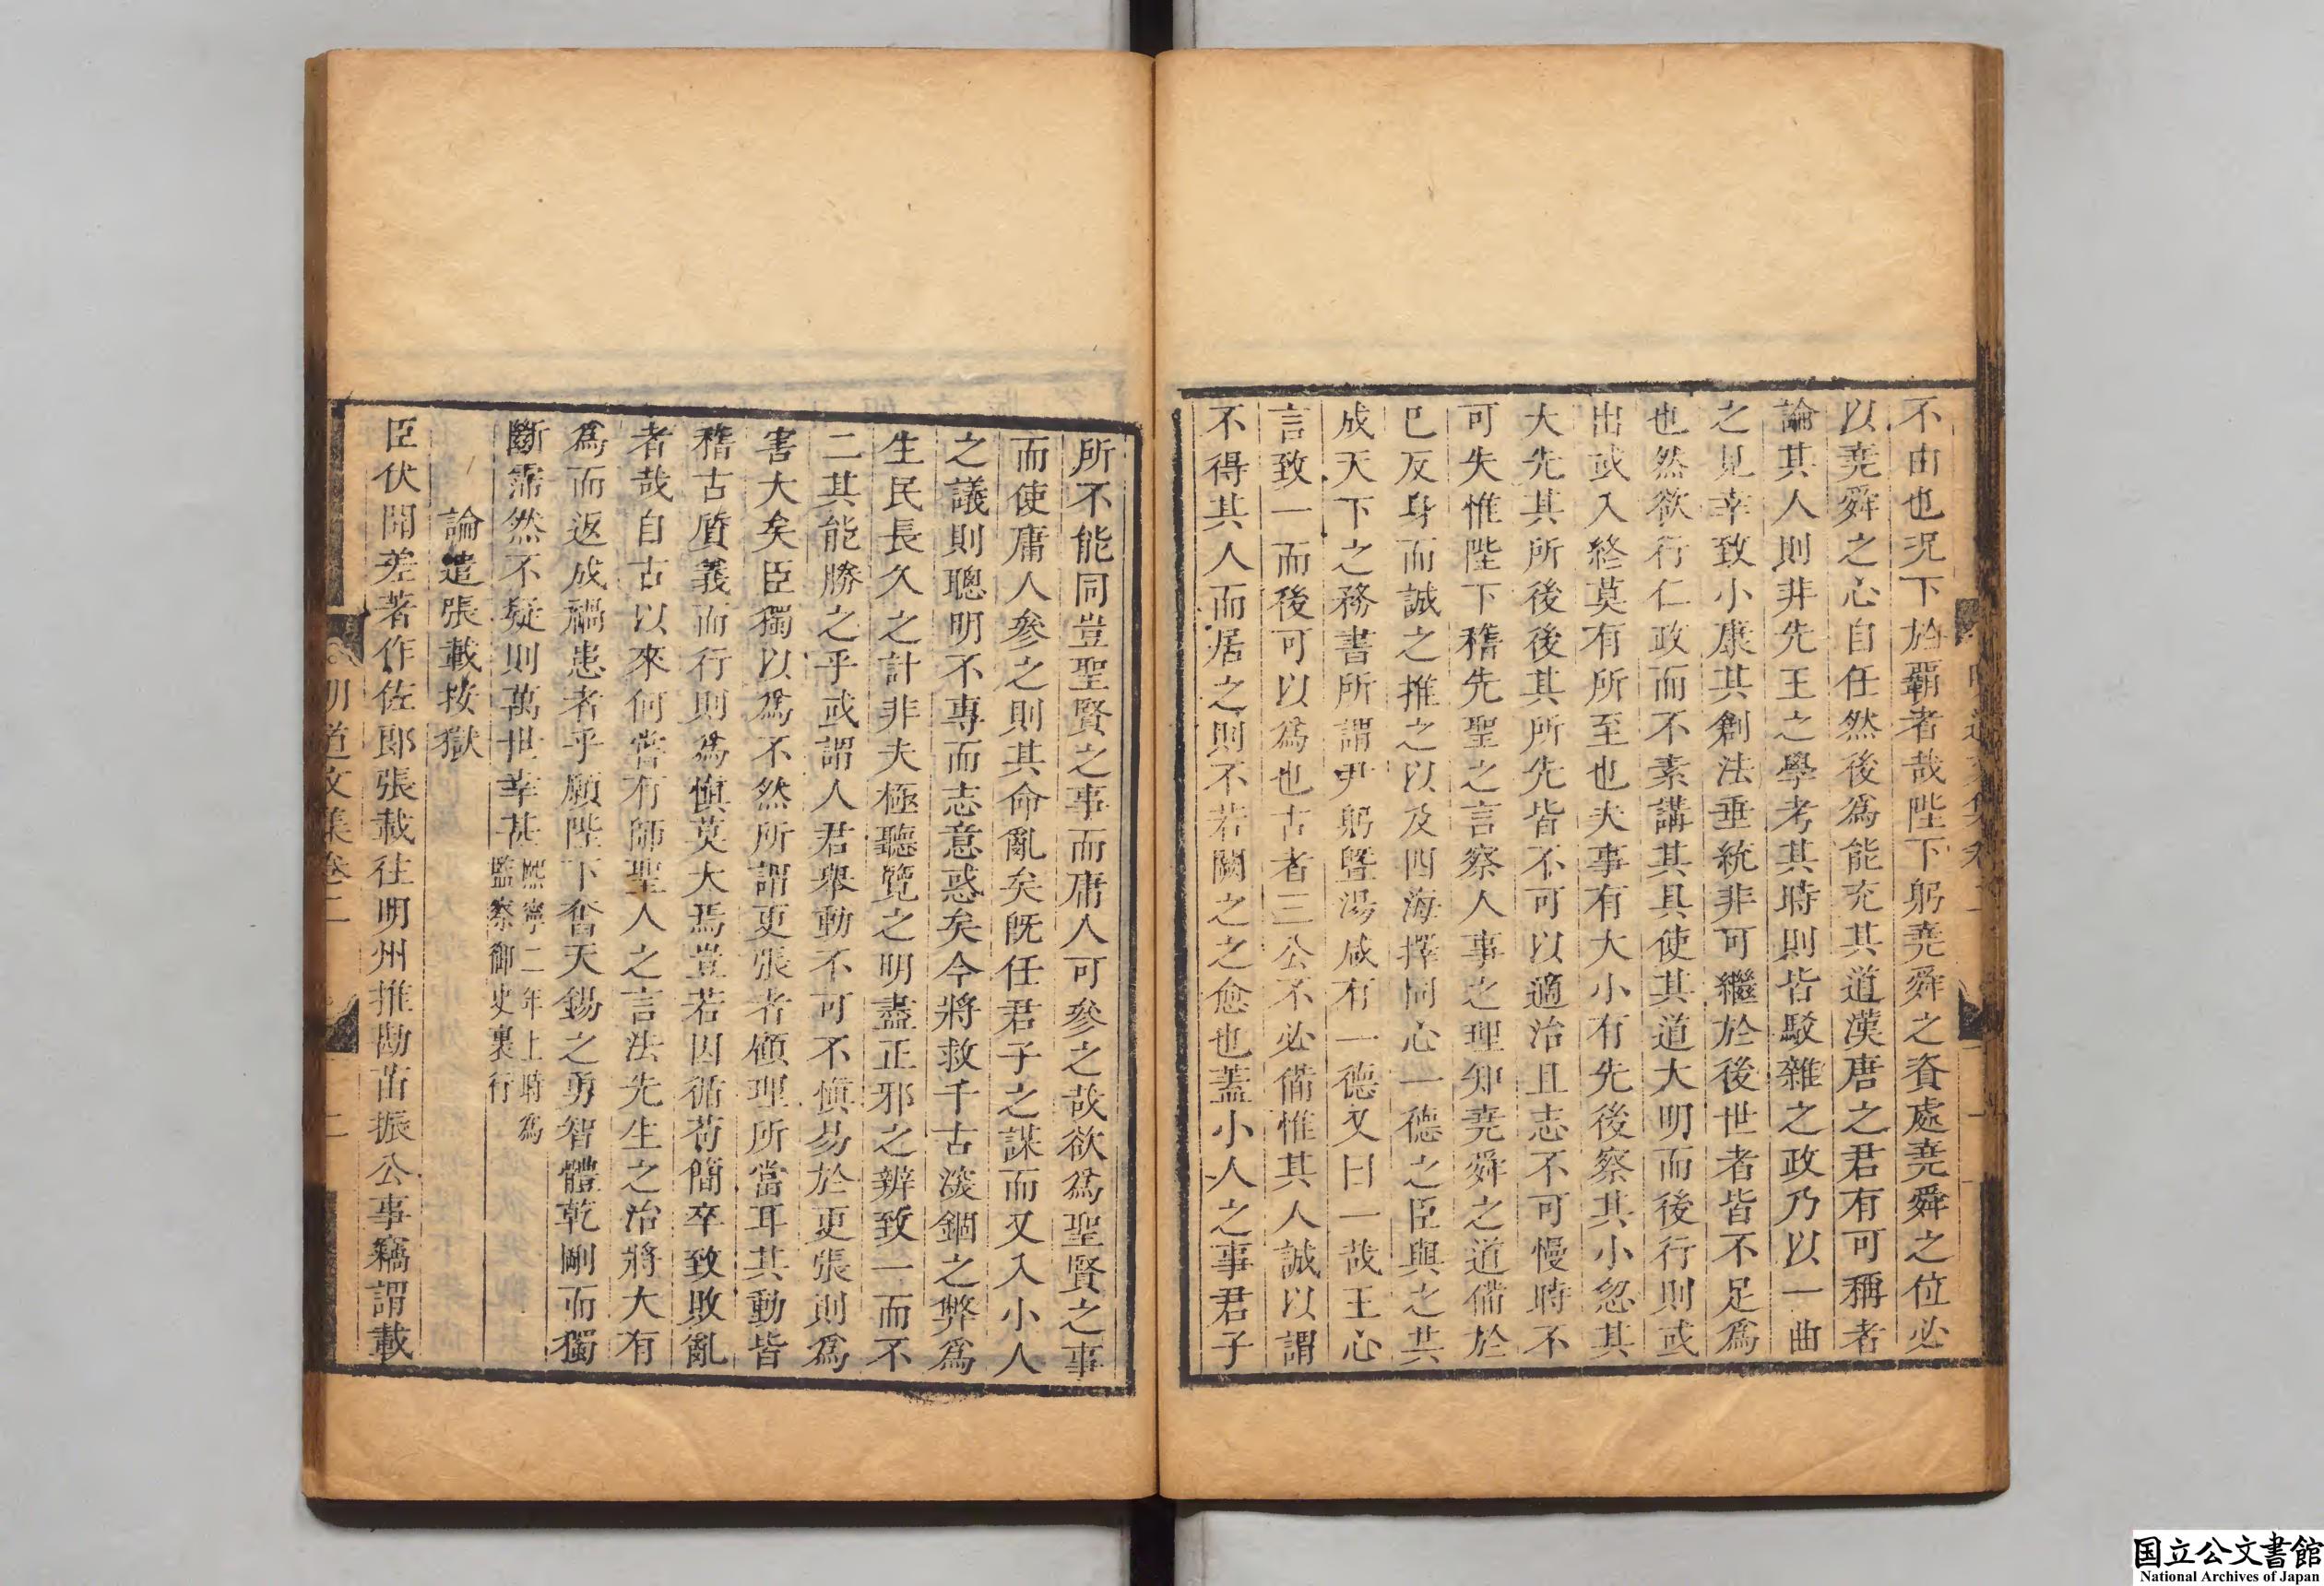 不由也況下於覇者哉陛下躬堯舜之資處堯舜之位必
以堯舜之心自任然後爲能充其道漢唐之君有可稱者
論其人則非先王之學考其時則皆駁雜之政乃以一曲
之見幸致小康其創法垂統非可繼於後世者皆不足爲
也然欲行仁政而不素講其具使其道大明而後行則或
出或入終莫有所至也夫事有大小有先後察其小忽其
大先其所後後其所先皆不可以適治且志不可慢時不
可失惟陛下稽先聖之言察人事之理知堯舜之道備於
已反身而誠之推之以及四海擇同心一德之臣與之共
成天下之務書所謂尹躬曁湯咸有一德又曰一哉王心
言致一而後可以爲也古者三公不必備惟其人誠以謂
不得其人而居之則不若闕之之愈也蓋小人之事君子
所不能同豈聖賢之事而庸人可參之哉欲爲聖賢之事
而使庸人參之則其命亂矣旣任君子之謀而又入小人
之議則聰明不專而志意惑矣今將救千古深錮之弊爲
生民長久之計非夫極聽覽之明盡正邪之辨致一而不
二其能勝之乎或謂人君舉動不可不慎易於更張則爲
害大矣臣獨以爲不然所謂更張者顧理所當耳其動皆
稽古質義而行則爲慎莫大焉豈若因循苟簡卒致敗亂
者哉自古以來何嘗有師聖人之言法先生之治將大有
爲而返成禍患者乎願陛下奮天錫之勇智體乾剛而獨
斷霈然不疑則萬世幸甚熙寧二年上時爲
監察御史裏行
論遣張載按獄
臣伏聞差著作佐郎張載往明州推勘苗振公事竊謂載
明道文集卷二
二
国立公文書館
National Archives of Japan